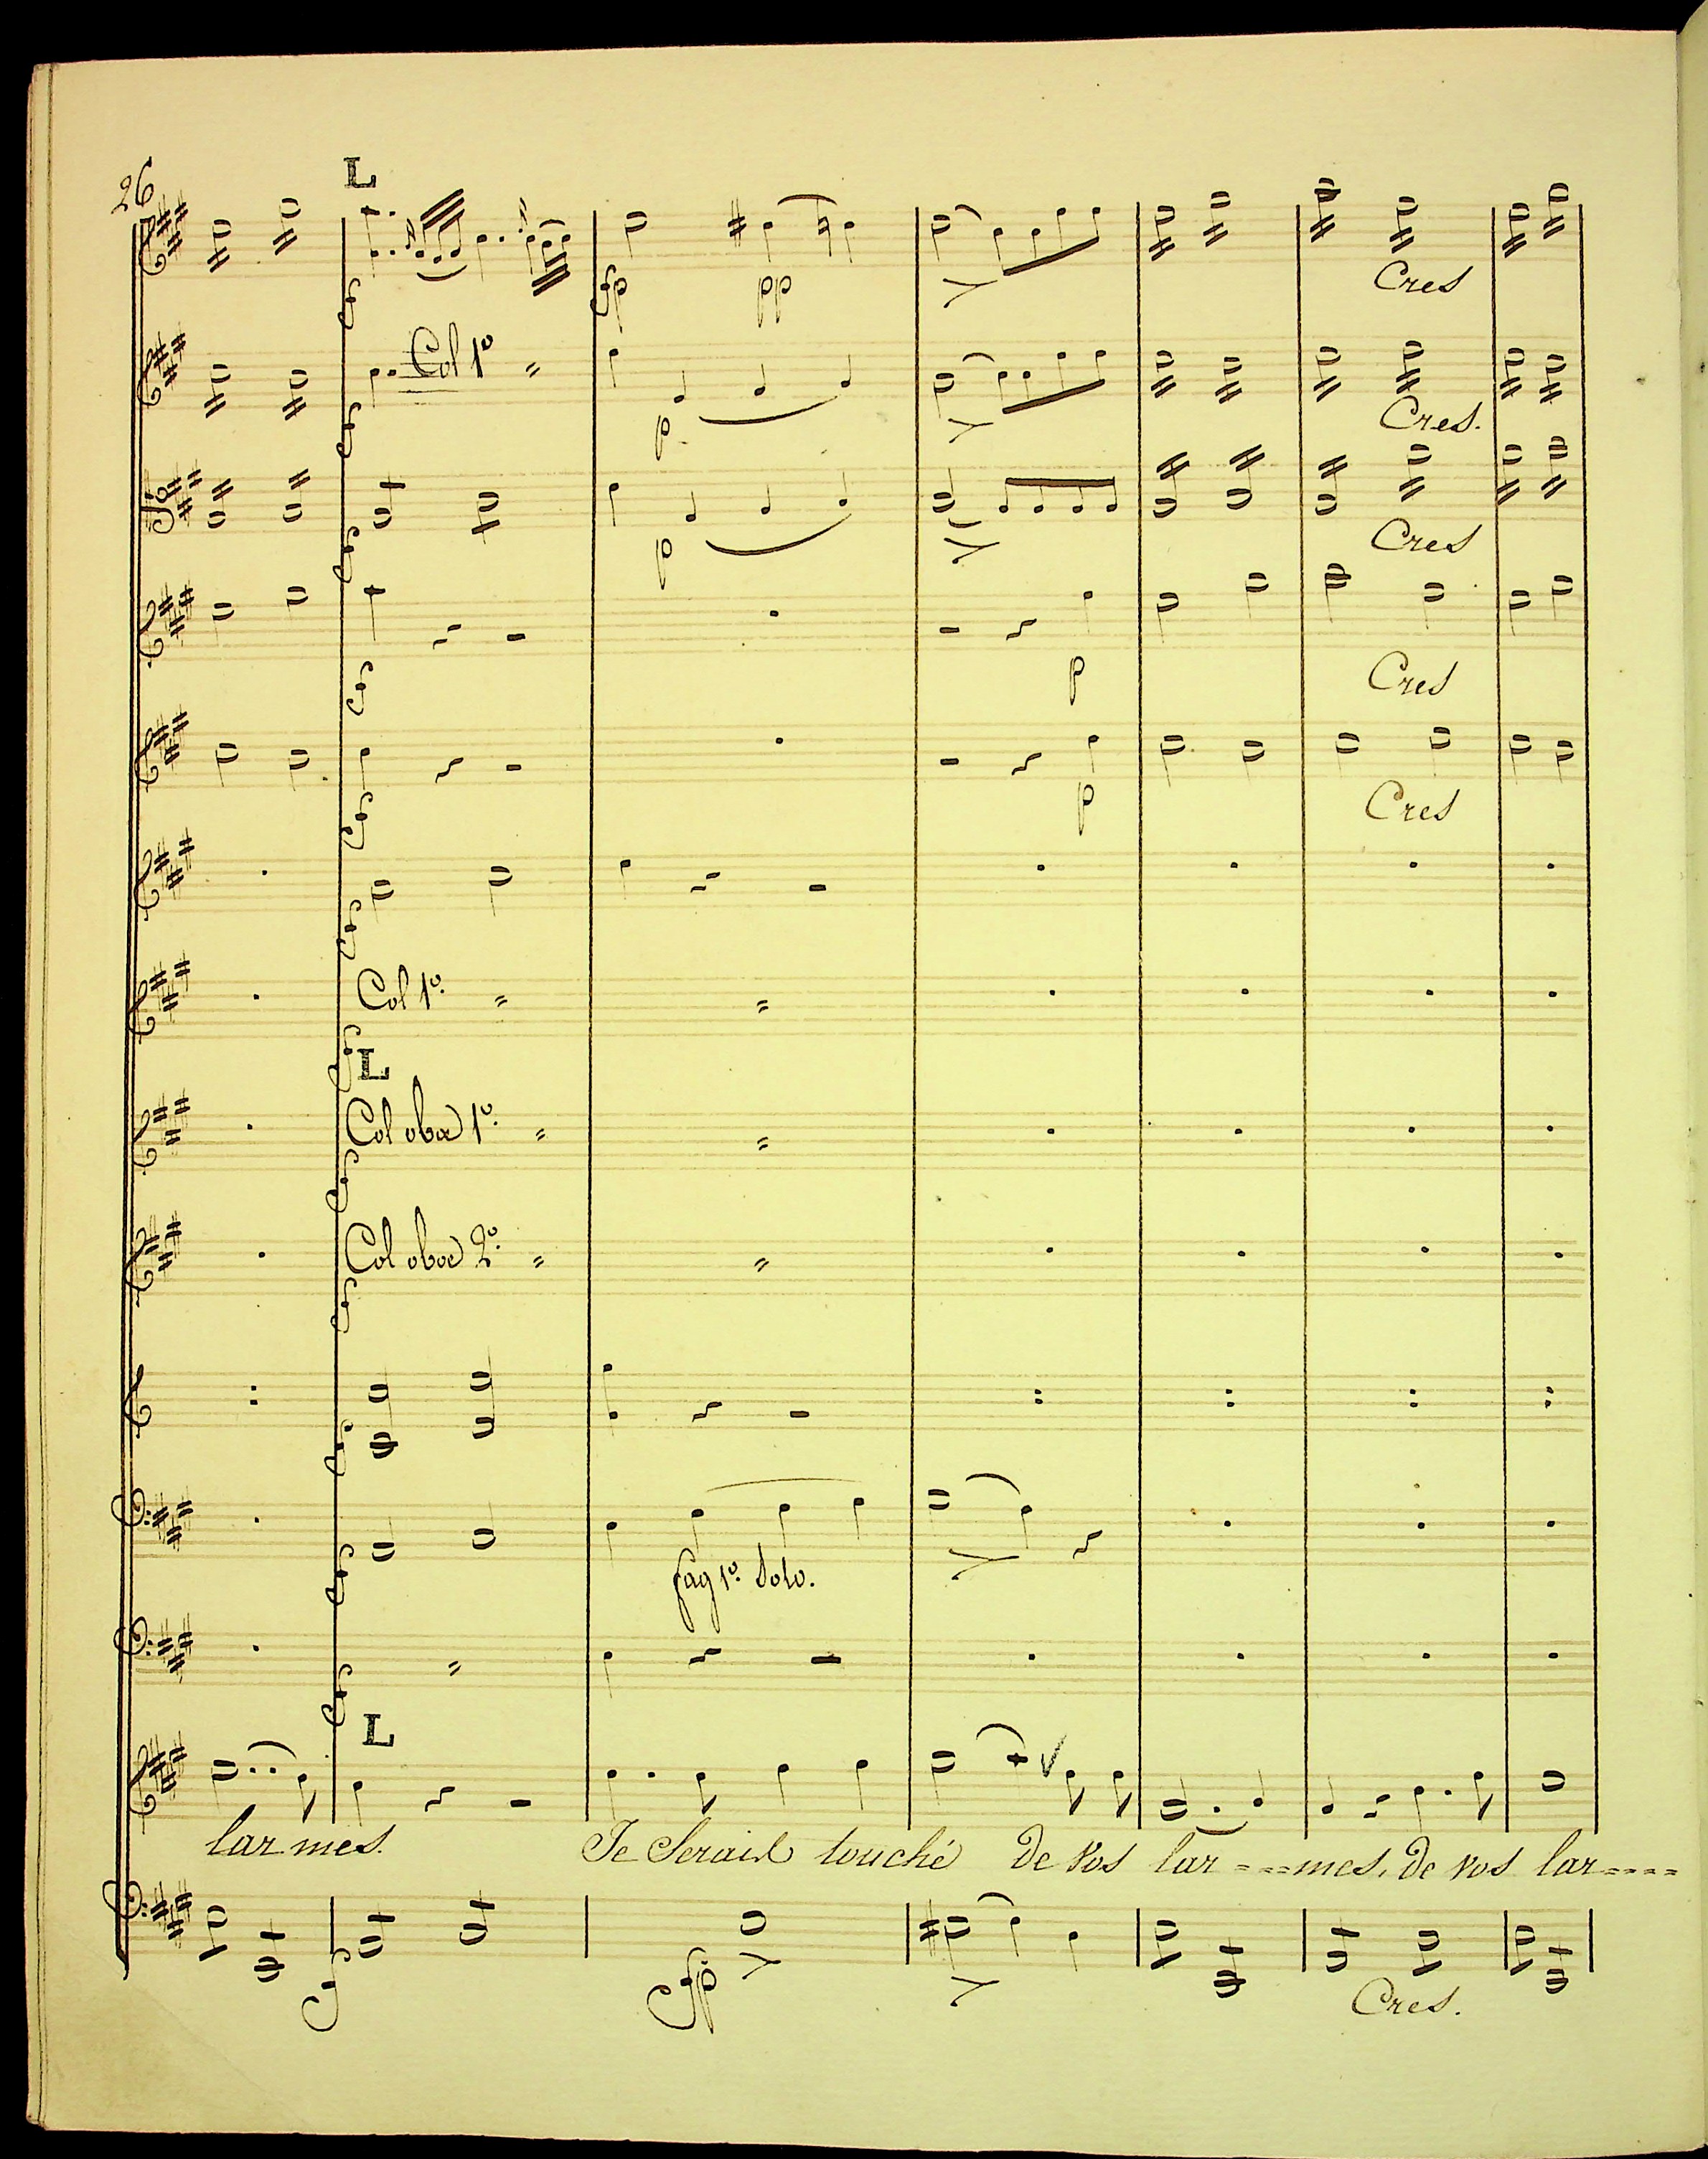 26
L
f
fp
pp
Cres
Col 1º
f
p
Cres.
f
p
Cres
f
p
Cres
f
p
Cres
f
Col 1º.
f
L
Col oboe 1º.
f
Col oboe 2º.
f
f
f
fag 1º. Solo.
f
L
lar mes. Je Serais touché de vos lar---mes, de vos lar----
f
fp
Cres.